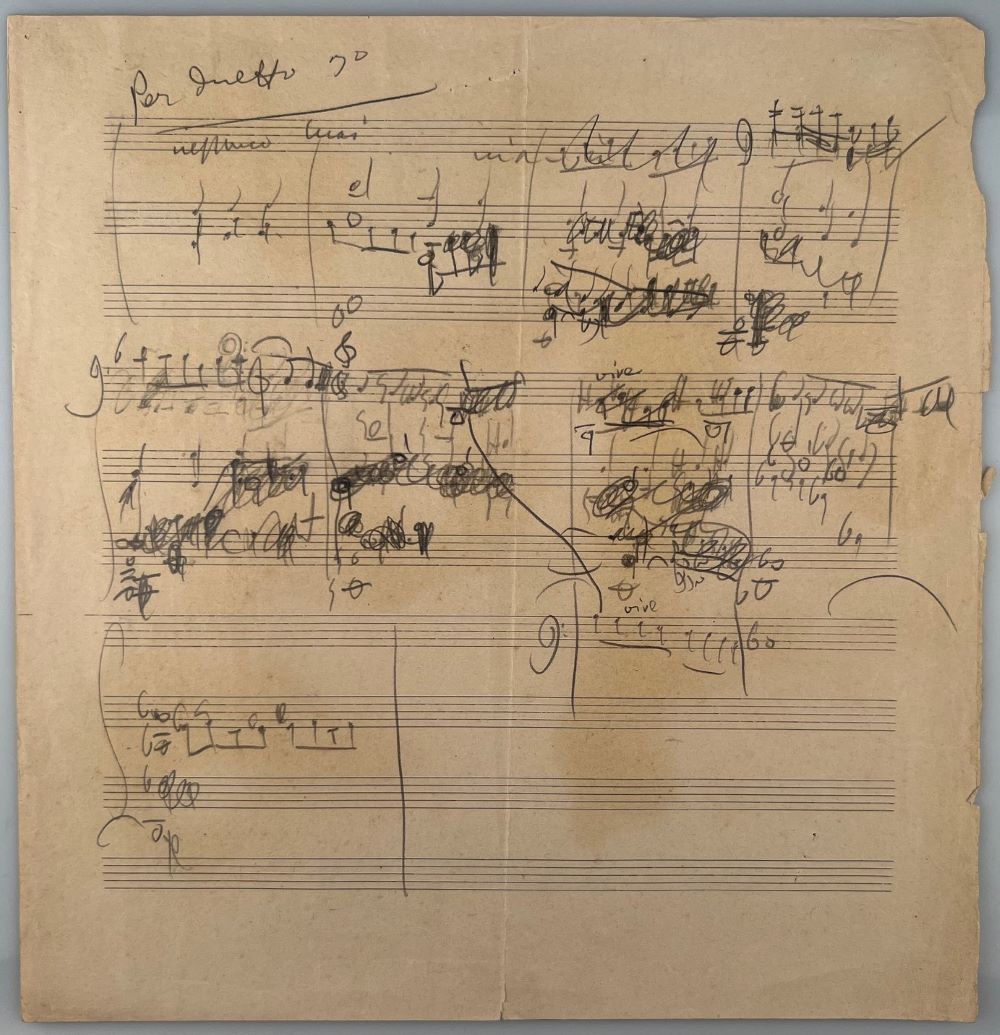 Per Duetto 3º
nessuno mai
vive
vive